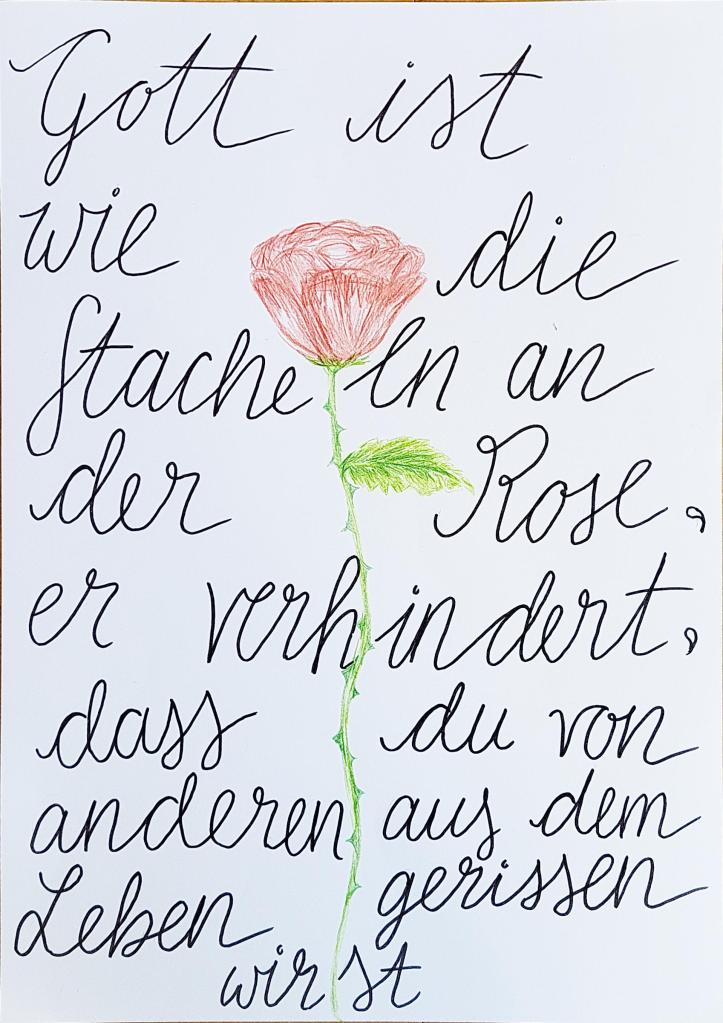 Gott ist
wie die
Stacheln an
der Rose,
er verhindert,
dass du von
anderen aus dem
Leben gerissen
wirst